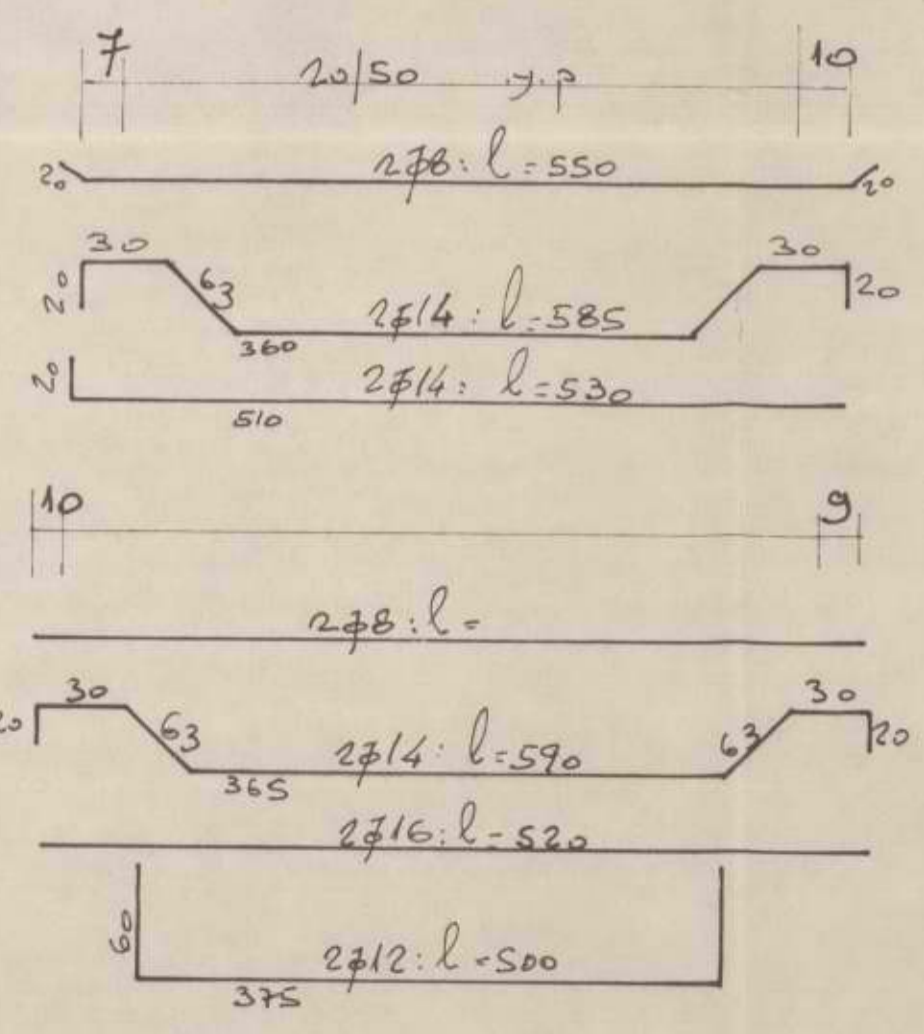 7 20/50 .y.p 10
20 2ϕ8: l=550 20
30 30
20 63 20
2ϕ14: l=585
360
20 2ϕ14: l=530
510
10 9
2ϕ8: l=
30 30
20 63 2ϕ14: l=590 63 20
365
2ϕ16: l=520
60 2ϕ12: l=500
375